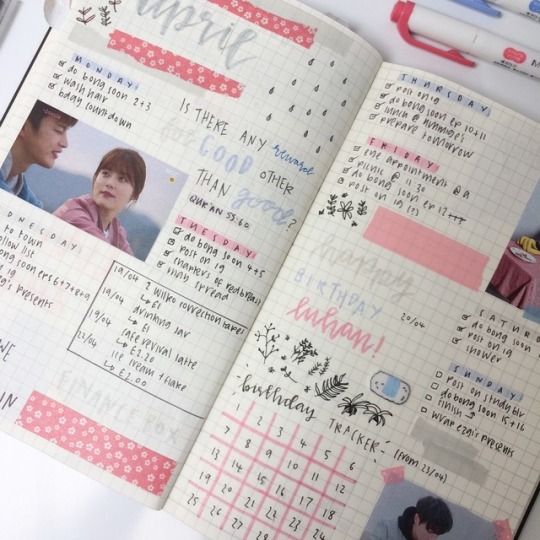 aprie
MONDAY:
do bong soon 2+3
wash hair
bday countdown
IS THERE ANY reward
GOOD OTHER
THAN good?
QUR'AN 55:60
TUESDAY:
do bong soon 4+5
post on ig
chapters of redbreast
may spread
DNESDAY:
to town
ollow list
ong soon ep 6+7+8+9
ig
zgi's presents
19/04 2 wilko correction tapes
↳ £1
19/04 drinking jar
↳ £1
19/04 cafe revival latte
↳ £2.20
22/04 ice cream + flake
↳ £2.00
WE
IN
FINANCE BOX
THURSDAY:
post on ig
do bong soon ep 10+11
lunch @
prepare tomorrow
FRIDAY:
eye appointment @ 9
picnic @ 11.30
do bong soon ep 12
post on ig (?)
HAPPY
BIRTHDAY
luhan!
20/04
SATURD
do bong soon
post on ig
shower
SUNDAY:
post on studyblr
do bong soon 15+16
finish →
wrap ezgi's presents
birthday
TRACKER:
(from 23/04)
1 2 3 4 5 6
7 8 9 10 11 12
13 14 15 16 17 18
19 20 21 22 23 24
25 26 27 28